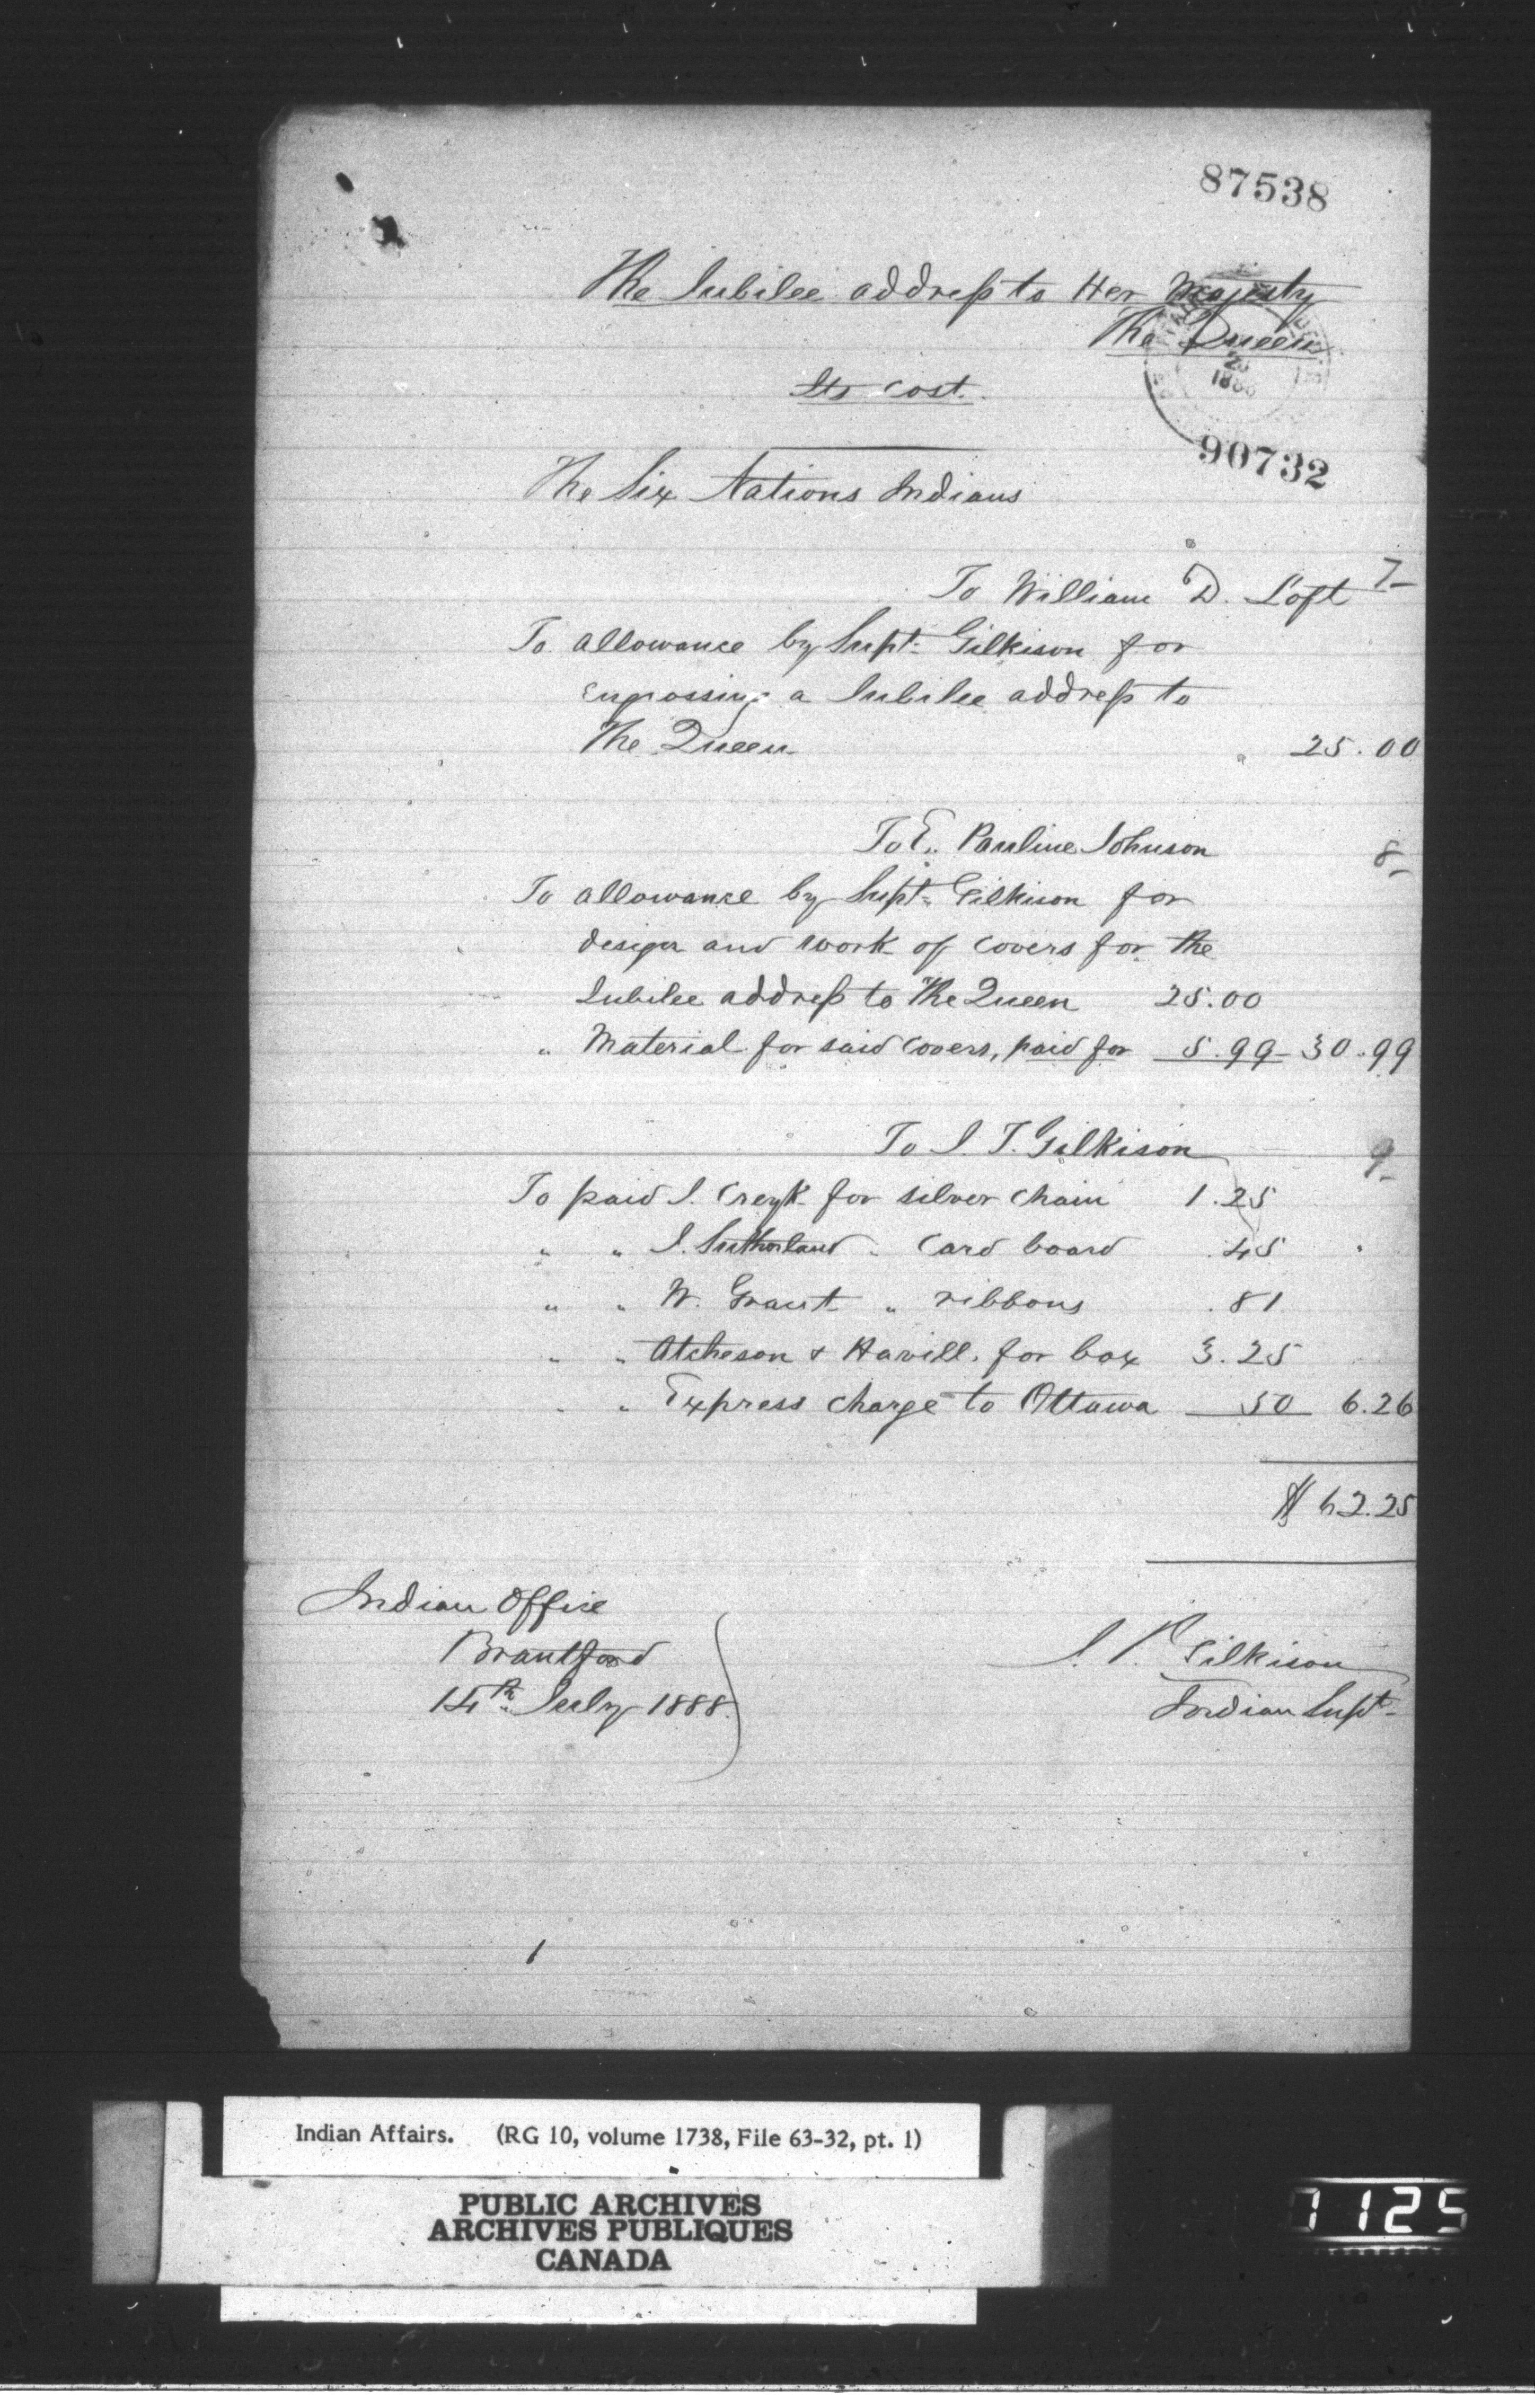 87538
The Jubilee address to Her Majesty
The Queen
Its cost.
90732
The Six Nations Indians
To William D. Loft 7-
To allowance by Supt: Gilkison for
engrossing a Jubilee address to
The Queen 25.00
To E. Pauline Johnson 8-
To allowance by Supt: Gilkison for
design and work of covers for the
Jubilee address to The Queen 25.00
" Material for said covers, paid for 5.99 - 30.99
To J. T. Gilkison 9-
To paid J. Creyk for silver chain 1.25
" " J. Sutherland " Card board .45
" " W. Grant " ribbons .81
" " Atcheson & Havill, for box 3.25
" " Express charge to Ottawa 50 6.26
$ 62.25
Indian Office
Brantford
14th July 1888.
J. T. Gilkison
Indian Supt-
Indian Affairs. (RG 10, volume 1738, File 63-32, pt. 1)
PUBLIC ARCHIVES
ARCHIVES PUBLIQUES
CANADA
1125